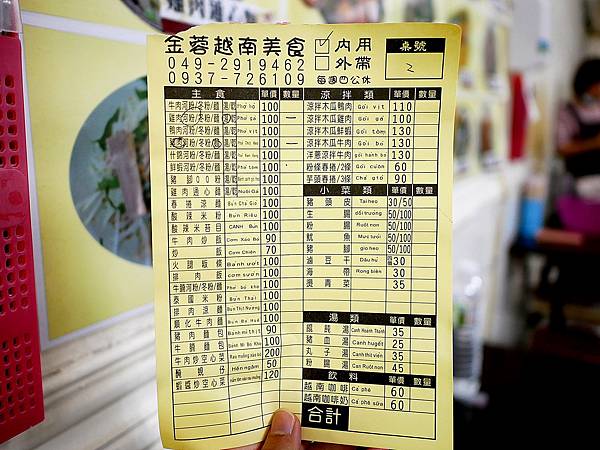 金蓉越南美食
049-2919462
0937-726109
✓ 內用
外帶
每週四公休
桌號
2
主食 單價 數量
牛肉河粉/冬粉/麵 湯/乾 Phở bò 100
雞肉河粉/冬粉/麵 湯/乾 Phở gà 100 一
鴨肉河粉/冬粉/麵 湯/乾 Phở vịt 100
豬肉河粉/冬粉/麵 湯/乾 100 一
什錦河粉/冬粉/麵 湯/乾 100
鮮蝦河粉/冬粉/麵 湯/乾 Phở tôm 100
豬腳00粉 100
雞肉通心麵 Nuôi Gà 100
春捲涼麵 Bún Chả Giò 100
酸辣米粉 Bún Riêu 100
酸辣米苔目 CANH Bún 100
牛肉炒飯 Cơm Xào Bò 90
炒飯 Cơm Chiên 70
火腿粄條 Bánh ướt 100
排肉飯 cơm sườn 100
牛腩河粉/冬粉/麵 Phở bò kho 100
泰國米粉 Bún Thái 100
排肉涼麵 Bún Thịt Nướng 100
順化牛肉麵 Bún Bò Huế 100
豬肉麵包 Bánh mì thịt 90
牛腩麵包 Bánh Mì Bò Kho 100
牛肉炒空心菜 Rau muống xào bò 200
醃蜆仔 Hến ngâm 50
蝦醬炒空心菜 120
涼拌類 單價 數量
涼拌木瓜鴨肉 Gỏi vịt 110
涼拌木瓜雞肉 Gỏi gà 100
涼拌木瓜鮮蝦 Gỏi tôm 130
涼拌木瓜牛肉 Gỏi bò 130
洋蔥涼拌牛肉 gỏi hành bò 130
粉條春捲/2條 Gỏi cuốn 60
芋頭春捲/3條 Chả giò 90
小菜類 單價 數量
豬頭皮 Tai heo 30/50
生腸 dồi trường 50/100
粉腸 Ruột non 50/100
魷魚 Mực tươi 50/100
豬腳 giò heo 50/100
滷豆干 Đậu hủ 30
海帶 Rong biển 30
燙青菜 35
湯類 單價 數量
餛飩湯 Canh Hoành Thánh 35
豬血湯 Canh huyết 25
丸子湯 Canh thịt viên 35
粉腸湯 Can Ruột non 45
飲料 單價 數量
越南咖啡 Cà phê 60
越南咖啡奶 Cà phê sữa 60
合計